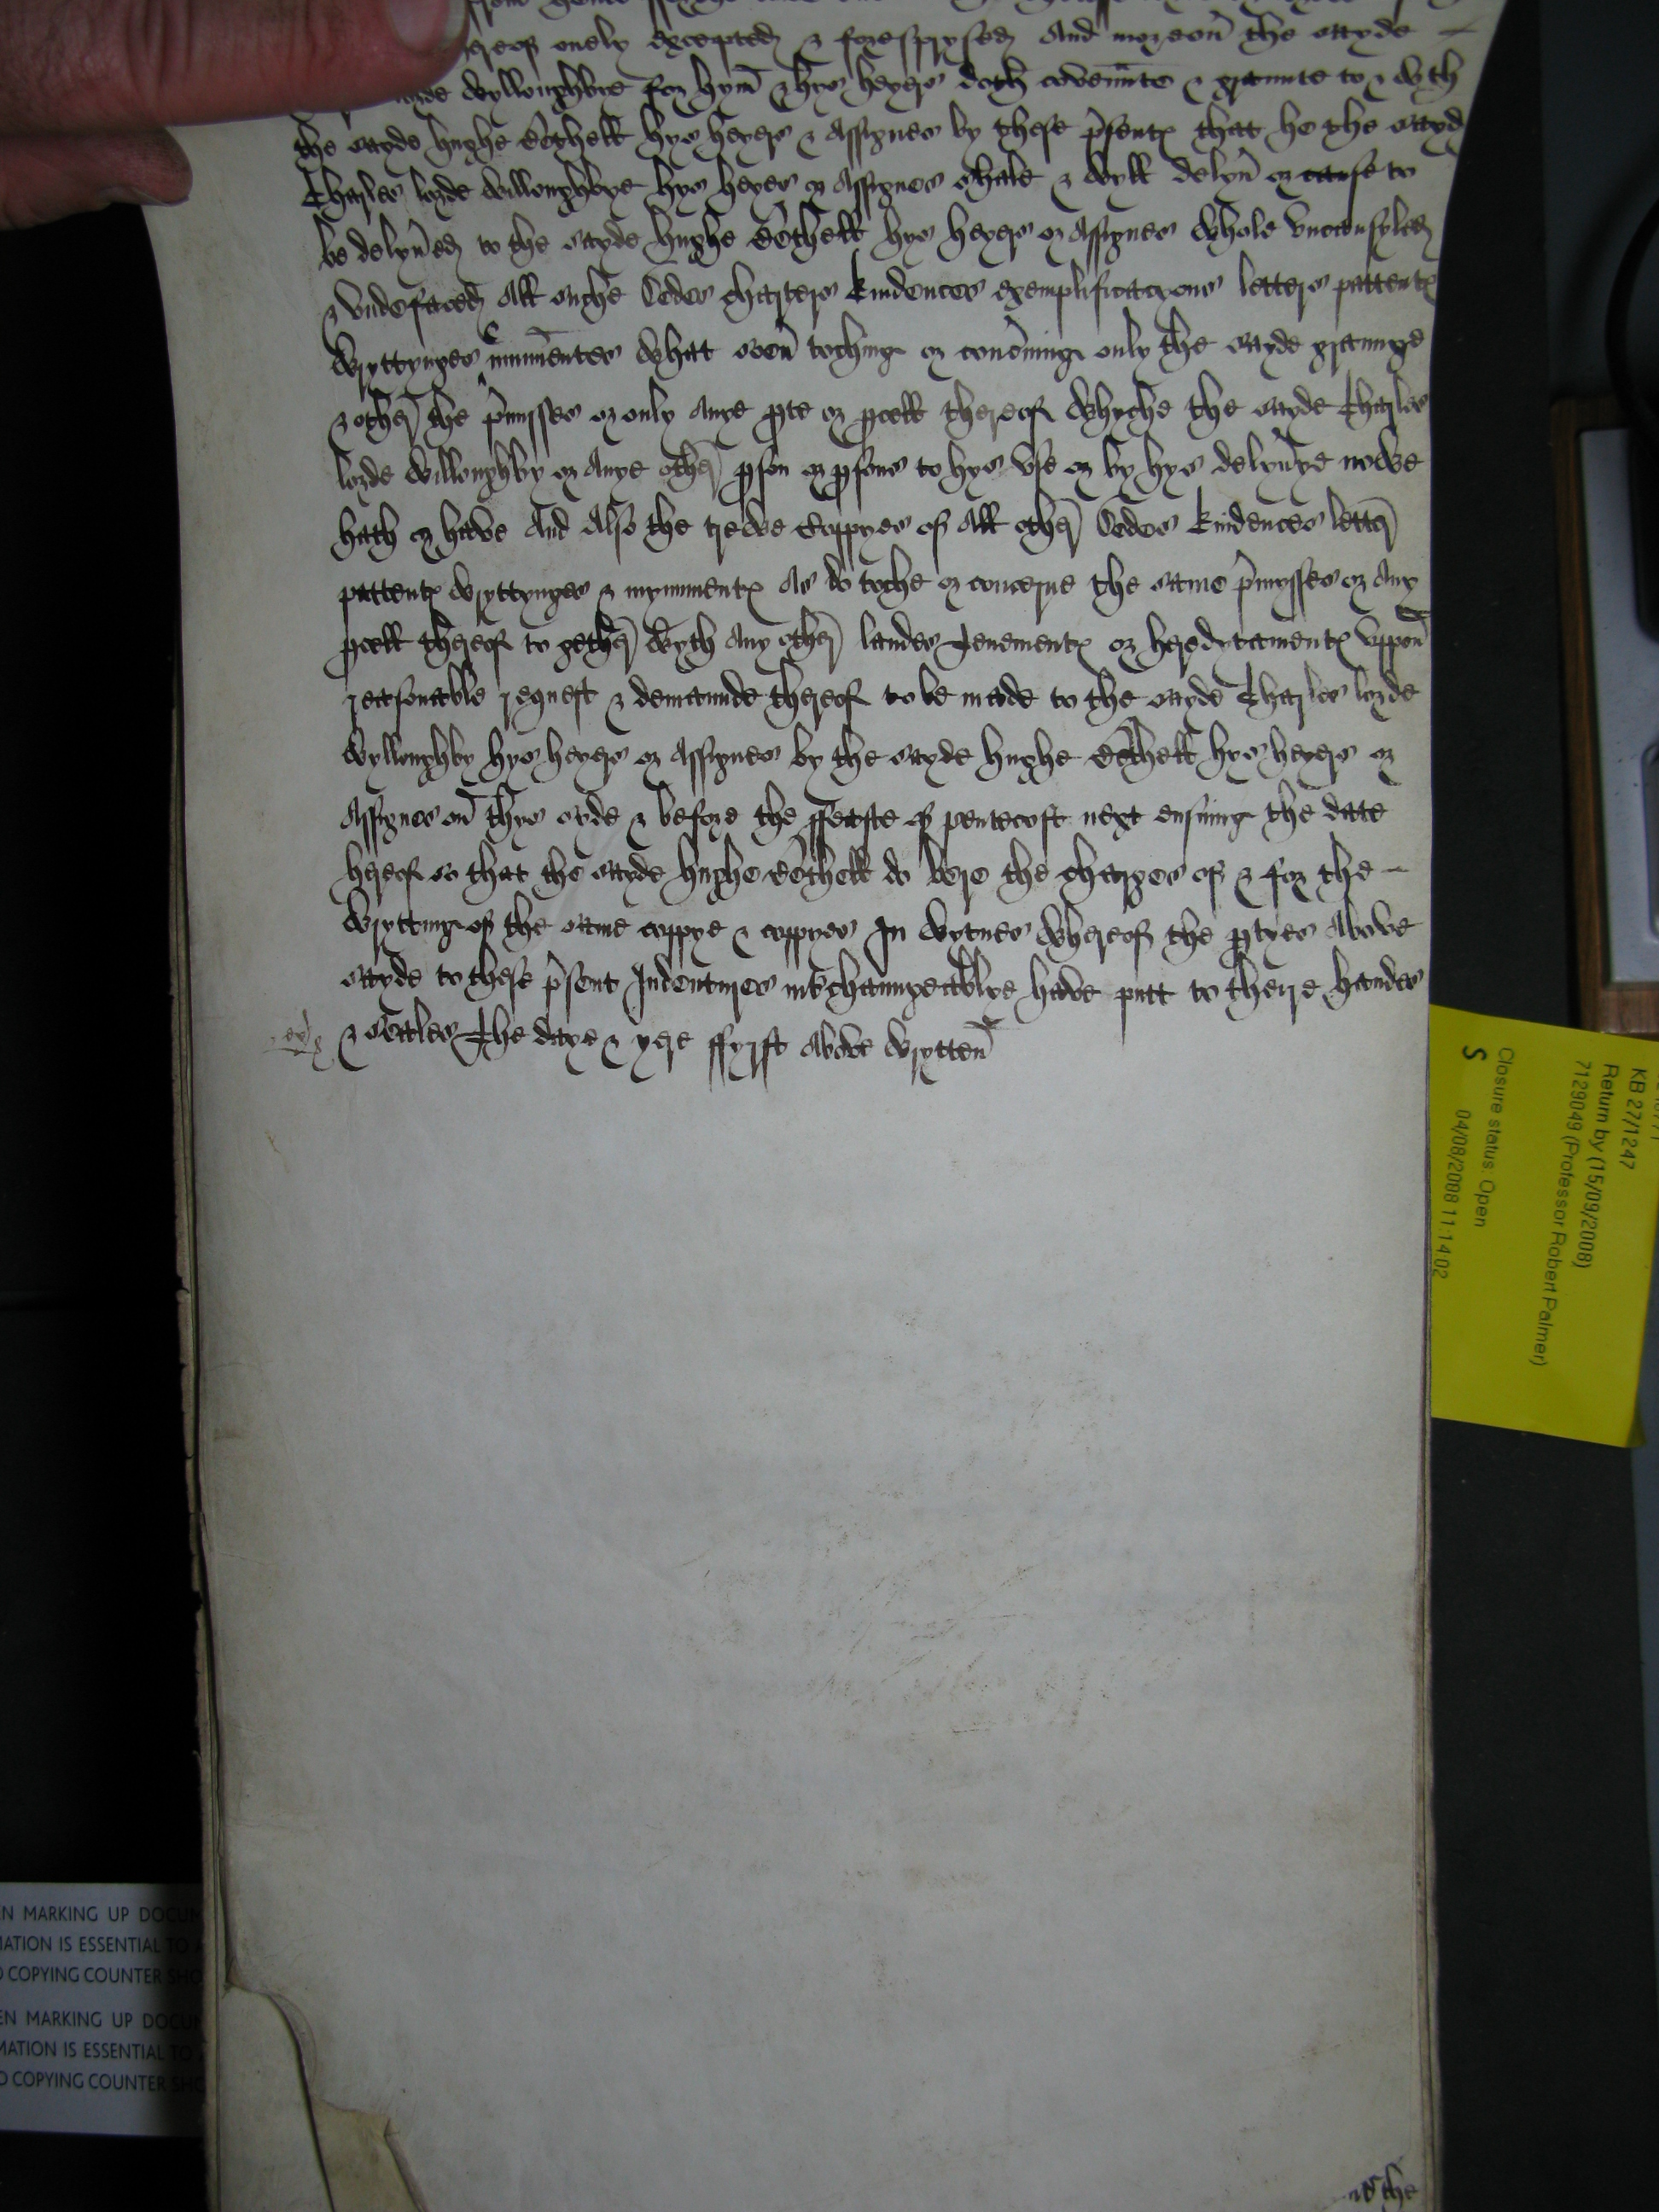 onely excepted & foresprysed And moreov the sayde
Wylloughbye for hym & hys heyers doth covennte & graunte to & wth
the sayde hughe hys heyers & Assignes by these psent that he the sayd
Charles lorde Willoughbye hys heyres or Assignes shale & wyll delyv or cause to
be delyved to the sayde hughe hys heyers or Assignes whole uncansyled
& undefaced All suche Dedes charters Evidences exemplificacyons letters pattent
wryttynges & munimentes what soev toching or concning only the sayde graunge
& other the pmisses or only Anye pte or pcell thereof whyche the sayde Charles
lorde Willoughby or Anye other pson or psons to hys use or by hys delyvye nowe
hath or have And Also the trewe Coppyes of All other Dedes Evidences letter
pattent wryttynges & myniment As do toche or concerne the same pmysses or Any
pcell thereof to gether wyth Any other landes Tenement or heredytament uppon
reasonable request & demaunde thereof to be made to the sayde Charles lorde
Wylloughby hys heyers or Assignes by the sayde hughe hys heyers or
Assignes on thys syde & before the ffeaste of pentecost next ensuing the date
hereof so that the sayde hughe do bere the charges of & for the
wryttinge of the same coppye & coppyes In wytnes whereof the ptyes Above
sayde to these psent Indentures intchaungeablye have putt to theire handes
& Seales The daye & yere ffyrst Above wrytten
KB 27/1247
Return by (15/09/2008)
7129049 (Professor Robert Palmer)
Closure status: Open
S
04/08/2008 11:14:02
EN MARKING UP DOCUM
MATION IS ESSENTIAL TO A
D COPYING COUNTER SHO
EN MARKING UP DOCUM
MATION IS ESSENTIAL TO A
D COPYING COUNTER SHO
the